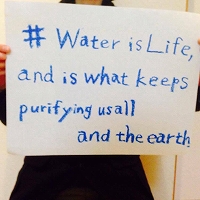 # Water is Life,
and is what keeps
purifying us all
and the earth